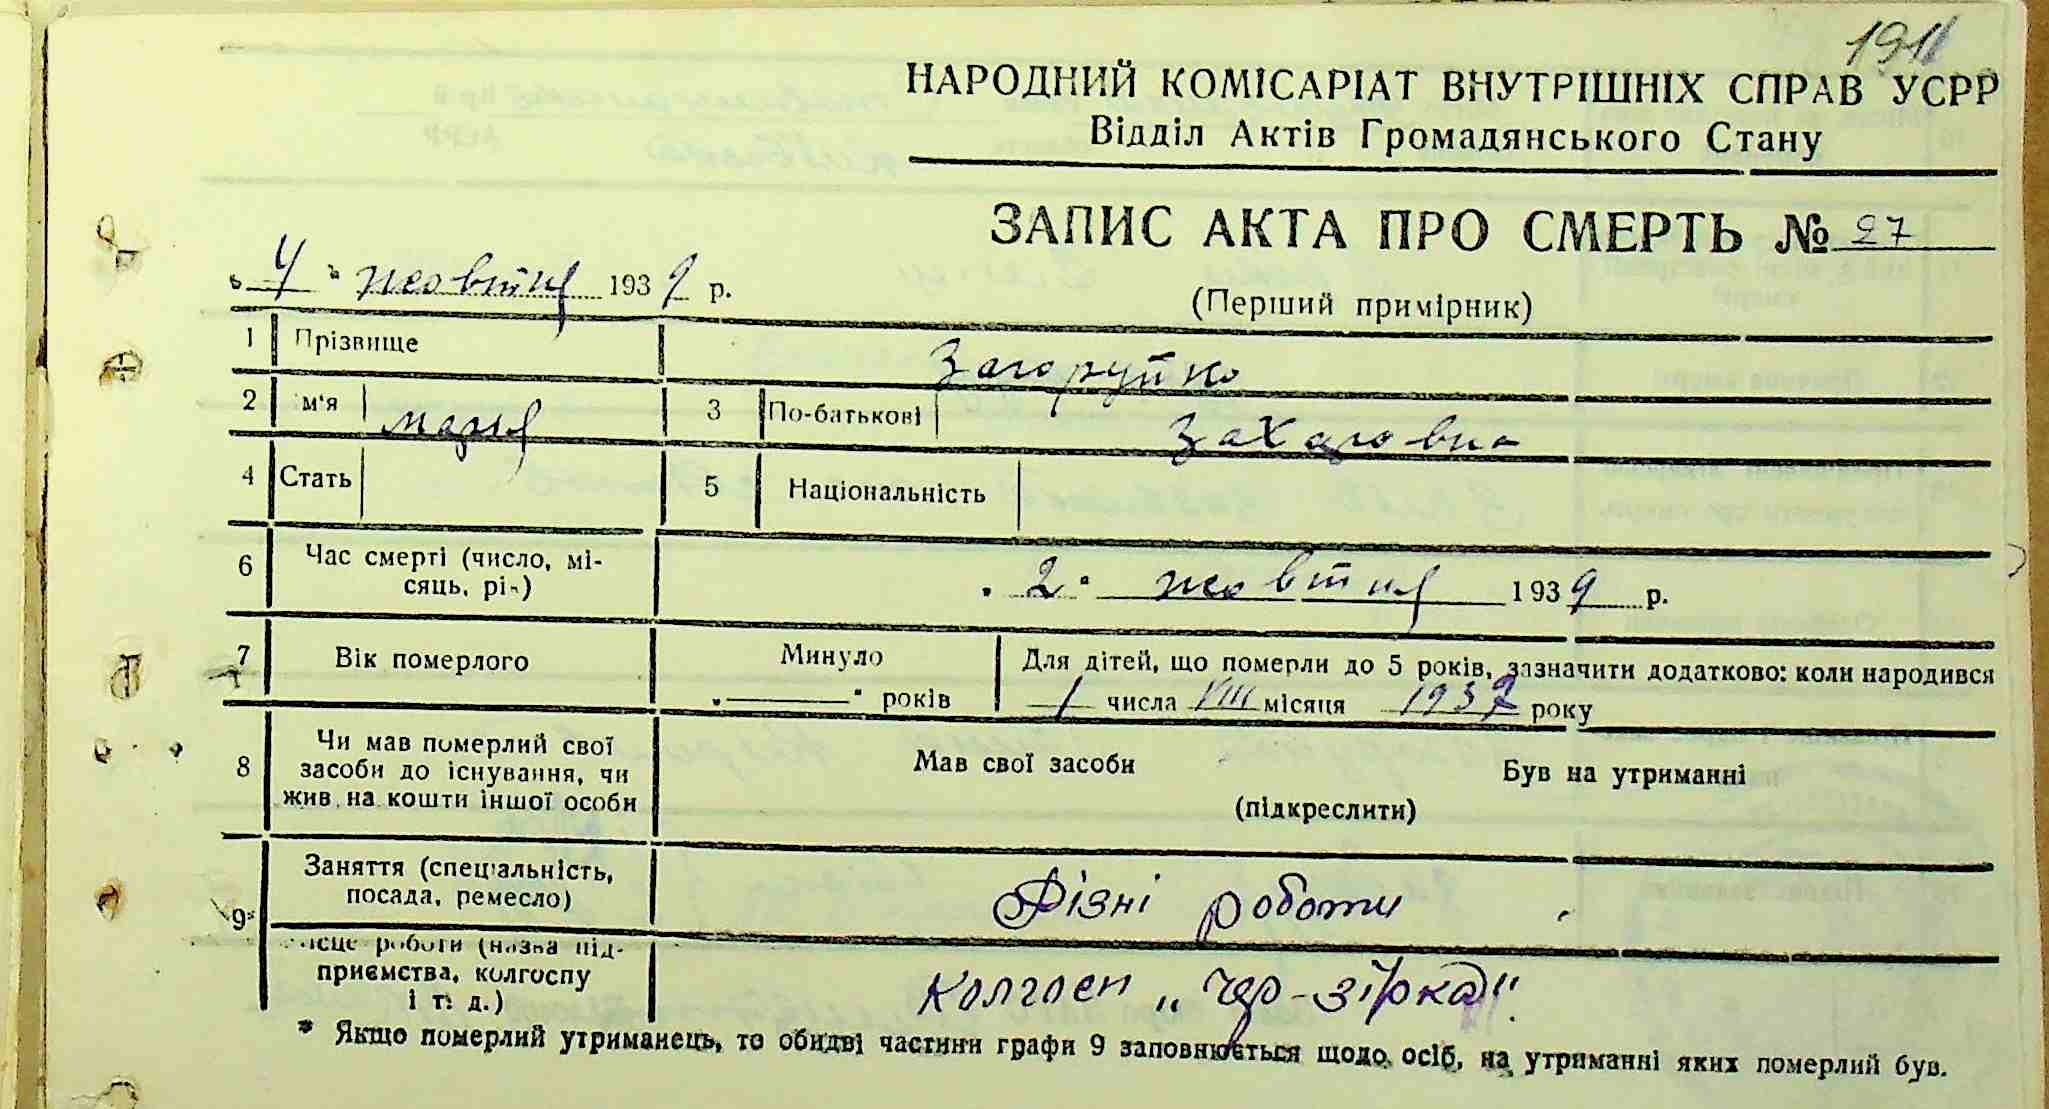 191
НАРОДНИЙ КОМІСАРІАТ ВНУТРІШНІХ СПРАВ УСРР
Відділ Актів Громадянського Стану
ЗАПИС АКТА ПРО СМЕРТЬ № 27
„ 4 “ жовтня 1939 р.
(Перший примірник)
1 Прізвище Загоруйко
2 м'я Марія 3 По-батькові Захаровна
4 Стать 5 Національність
6 Час смерті (число, мі-
сяць, рік) „ 2 “ жовтня 1939 р.
7 Вік померлого Минуло „ — “ років Для дітей, що померли до 5 років, зазначити додатково: коли народився
1 числа VIII місяця 1937 року
8 Чи мав померлий свої
засоби до існування, чи
жив на кошти іншої особи
Мав свої засоби Був на утриманні
(підкреслити)
9* Заняття (спеціальність,
посада, ремесло) Різні роботи
місце роботи (назва під-
приємства, колгоспу
і т. д.) Колгосп „Чер-зірка".
* Якщо померлий утриманець, то обидві частини графи 9 заповнюється щодо осіб, на утриманні яких померлий був.